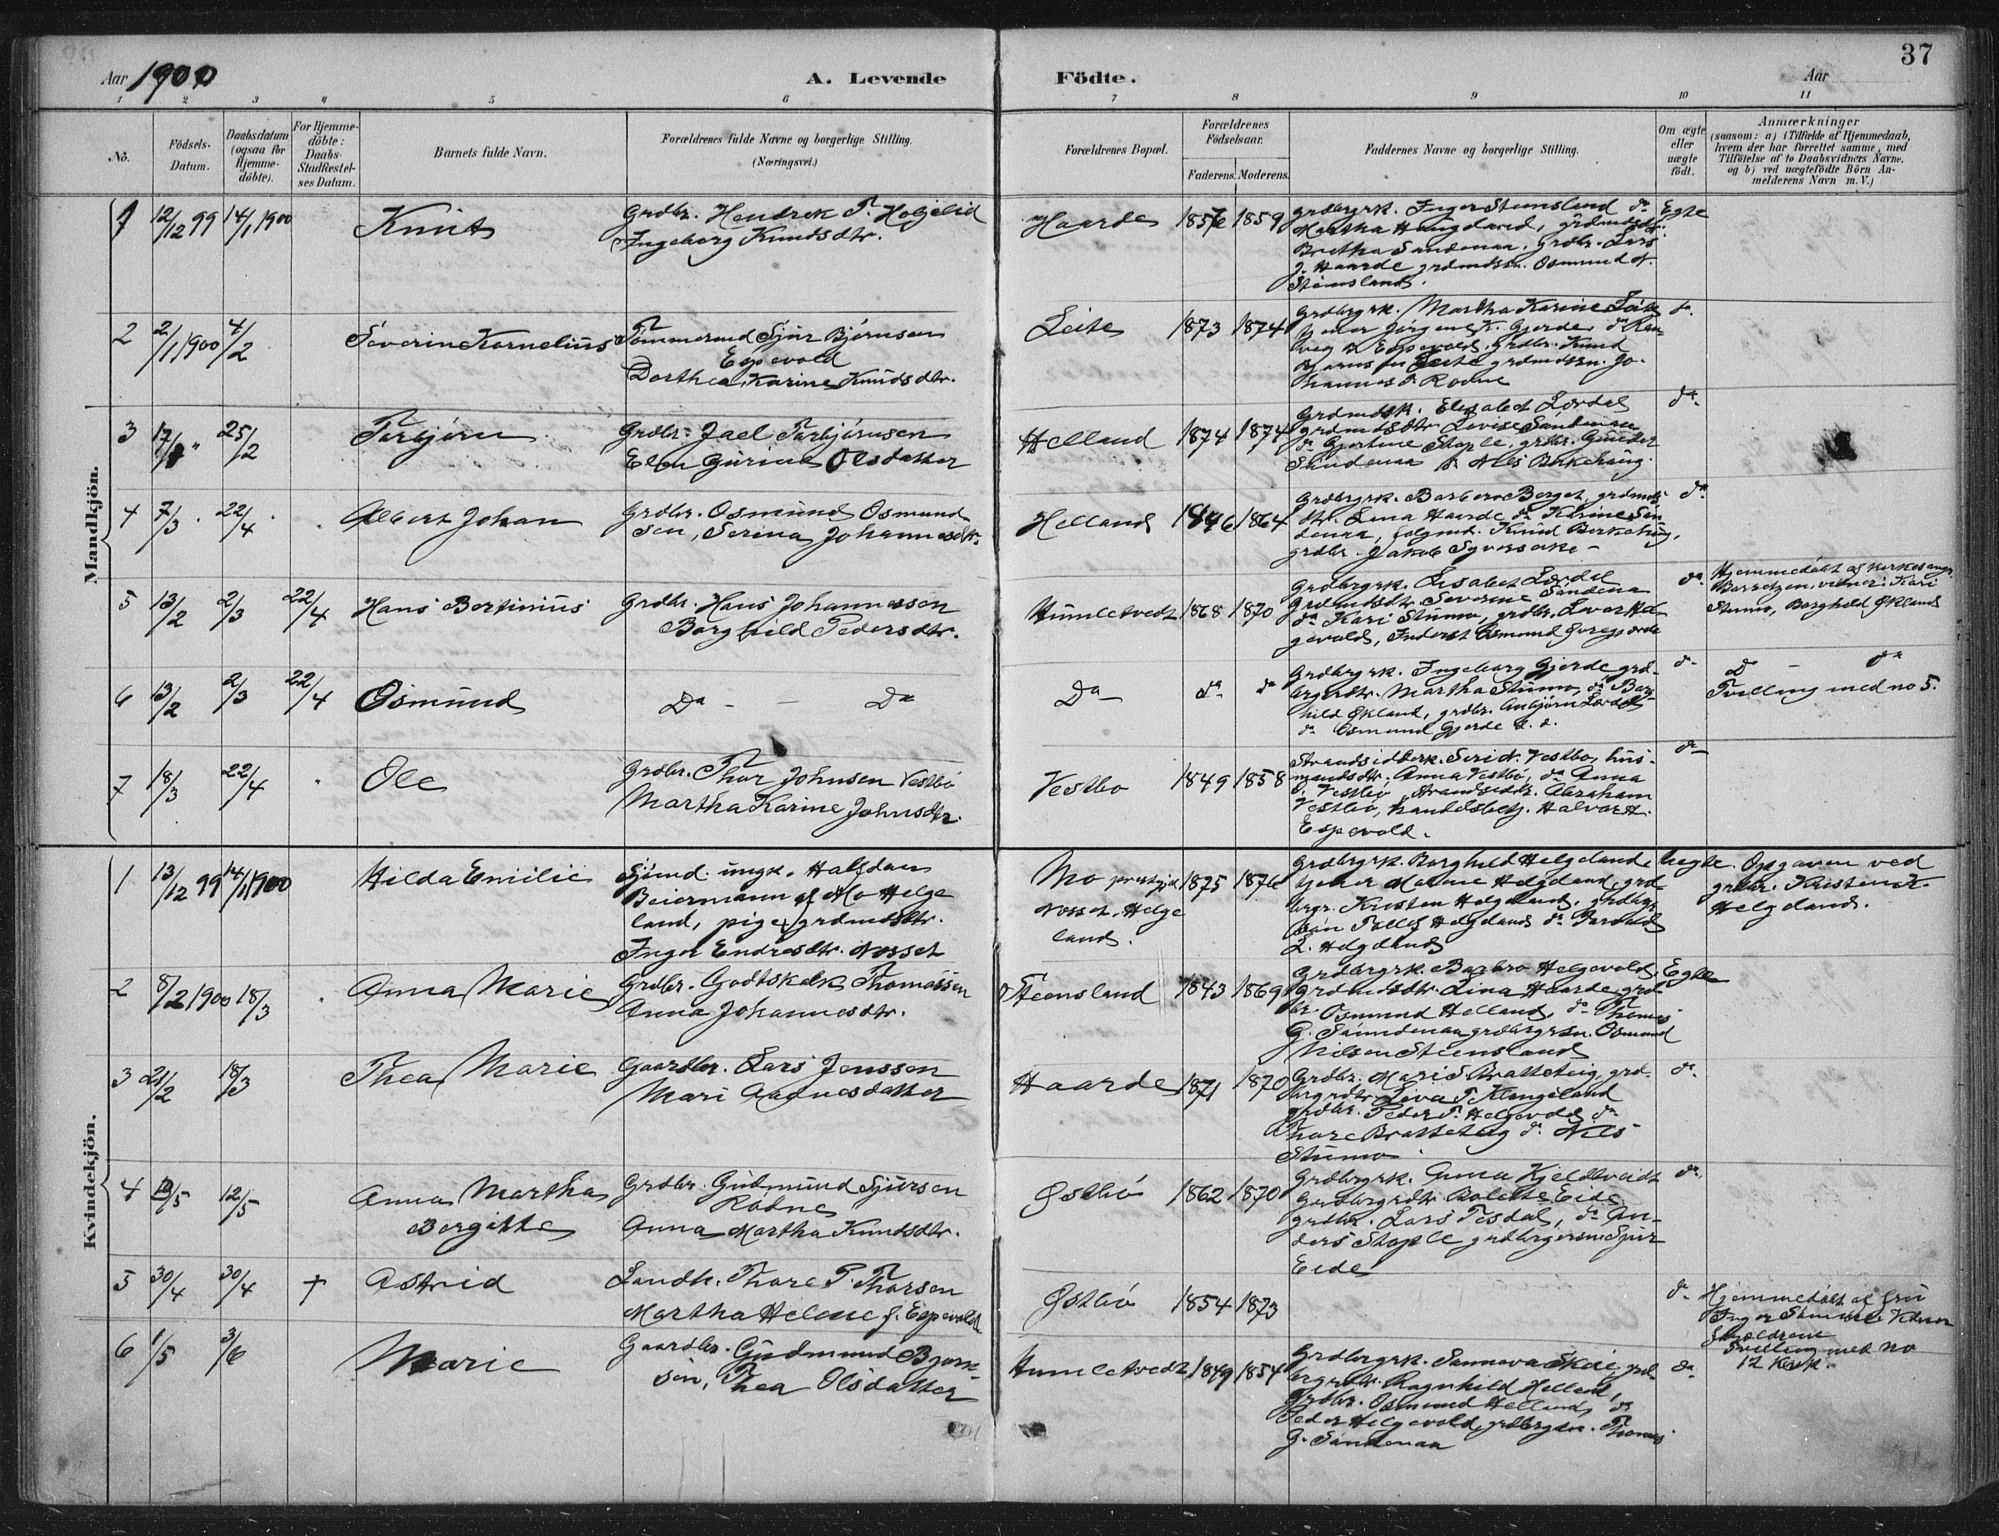 37
Aar 1900
A. Levende
Födte.
Aar
1 2 3 4 5 6 7 8 9 10 11
No.
Födsels-Datum.
Daabsdatum (ogsaa for Hjemme-döbte).
For Hjemme-döbte: Daabs-Stadfæstel-ses Datum.
Barnets fulde Navn.
Forældrenes fulde Navne og borgerlige Stilling.
(Næringsvei.)
Forældrenes Bopæl.
Forældrenes Födselsaar.
Faderens. Moderens.
Faddernes Navne og borgerlige Stilling.
Om ægte eller uægte födt.
Anmærkninger
(saasom: a) i Tilfælde af Hjemmedaab,
hvem der har forrettet samme, med
Tilföielse af to Daabsvidners Navne,
og b) ved uægtefödte Börn An-
melderens Navn m. V.)
Mandkjön.
1 12/12 99 14/1 1900 Knut
Grdbr. Hendrek T. Holjelid
Ingeborg Knudsdtr.
Haarde 1857 1859
grdbrgrk. Inger Stensland da
Martha Haugland, grdmdsdtr.
Bretha Sandenaa, grdbr. Lars
J. Haarde grdmdssn. Osmund
Stensland.
Egte
2 2/1 1900 4/2 Severin Kornelius
Tömmermd Sjur Bjørnsen
Espevold
Dorthea Karine Knudsdtr.
Leite 1873 1874
Grdbrgrk. Martha Karine Leite
Jørgine K. Gjerde, da Ran-
veg Espevold, grdbr. Knud
Leite grdmdssn. Jo-
hannes Rødne
do
3 17/1 " 25/2 Torbjørn
Grdbr. Jael Torbjørnsen
Elen Gurine Olsdatter
Helland 1874 1874
Grdmdsk. Elisabet Lordal
grdmdsdtr. Lovise Sandenaa
da Gjertine Stople, grdbr.
Sandenaa, Nils Birkehaug
da
4 7/3 " 22/4 " Albert Johan
Grdbr. Osmund Osmund
sen, Serina Johannesdtr.
Helland 1846 1864
Grdbrgrk. Barbro Berget, grdmds
dtr. Lina Haarde da Karine San
denaa, Knud Birkehaug,
grdbr. Jakob
da
5 13/2 2/3 22/4 Hans Bertinius
Grdbr. Hans Johannessen
Borghild Pedersdtr.
Humletvedt 1868 1870
Grdbrgrk. Elisabet Lordal
Grdmdsdtr. Severine Sandena
da Kari Stumo, grdbr.
Inderst Osmund
da
Hjemmedøbt af kirkesang.
vidner: Kari
Stumo, Borghild Økland
6 13/2 2/3 22/4 Osmund
Da - - Da
Da da da
Grdbrgrk. Ingeborg Gjerde grd
brgrdtr. Martha Stumo, da Borg-
hild Økland, grdbr. Anbjørn Lordal
da Osmund Gjerde
da
Do - da
Tvilling med no 5.
7 18/3 22/4 " Ole
Grdbr. Thor Johnsen Vestbö
Martha Karine Johnsdtr.
Vestbö 1849 1858
Strandsidderk. Vestbö, hus-
mandsdtr. Anna Vestbö, da Anna
Vestbö, strandsiddr. Abraham
Vestbö, handelsbetj. Halvor H.
Espevold.
da
Kvindekjön.
1 13/12 99 14/1 1900 Hilda Emilie
Sjömd. ungk. Halfdan
Beiermann af Mo Helge
land, pige, grdmdsdtr.
Inger Endresdtr. Nesset
Mo prestgjd
Nesset, Helge
land.
1875 1876
Grdbrgrk. Borghild Helgeland
Marine Helgeland, grd
brgr. Kristen Helgeland,
Tollef Helgeland da
L. Helgeland
Uegte
Opgaven ved
grdbr. Kristen K.
Helgeland.
2 8/2 1900 18/3 " Anna Marie
Grdbr. Godtskalk Thomassen
Anna Johannesdtr.
Steensland 1843 1869
Grdbrgrk. Barbro Helgevold,
Grdmdsdtr. Lina Haarde, grd
br. Osmund Helland, da Thomas
G. Sandenaa grdbrgrsn. Osmund
Nilsen Steensland
Egte
3 21/2 18/3 Thea Marie
Gaardbr. Lars Jenssen
Mari Aadnesdatter
Haarde 1871 1870
Grdbr. Mari S. Bratteteig, grd-
brgrdtr. Liva T. Klungeland
grdbr. Peder P. Helgevold, da
Thore Bratteteig da Nils
Stumo.
da
4 12/5 Anna Martha
Bergitte
Grdbr. Gudmund Sjursen
Rødne
Anna Martha Knudsdtr.
Østbö 1862 1870
Grdbrgrk. Anna Kjeldtveidt
Grdbrgrdtr. Bolette Eide,
grdbr. Lars Tesdal, da An-
ders Stople grdbrgersn. Sjur
Eide
da
5 30/4 30/4 + Astrid
Landh. Thore P. Thorsen
Martha Helene f. Espevold
Østbö 1854 1873
da
Hjemmedøbt af fru
Inger
Forældrene
Tvilling med no
12
6 1/5 3/6 Marie
Gaardbr. Gudmund Bjørn-
sen, Thea Olsdatter
Humletvedt 1849 1854
Grdbrgrk. Sanneva Skeie grd-
brgrdtr. Ragnhild Helland,
grdbr. Osmund Helland, da
Peder Helgevold, grdbrgsn. Thomas
G. Sandenaa
da